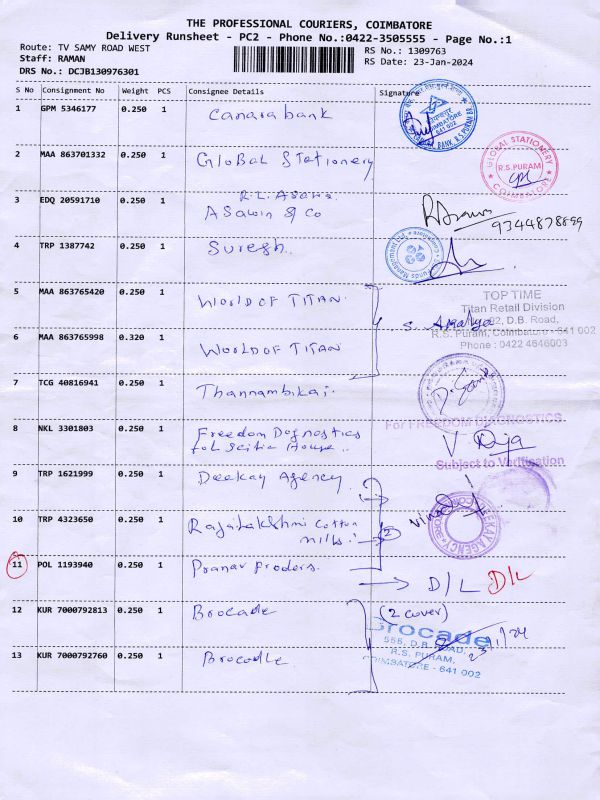 THE PROFESSIONAL COURIERS, COIMBATORE
Delivery Runsheet - PC2 - Phone No.:0422-3505555 - Page No.:1
Route: TV SAMY ROAD WEST
RS No.: 1309763
Staff: RAMAN
RS Date: 23-Jan-2024
DRS No.: DCJB130976301
S No Consignment No Weight PCS Consignee Details Signature
1 GPM 5346177 0.250 1 Canara bank
COIMBATORE
641 002
BANK R.S. PURAM BR
2 MAA 863701332 0.250 1 Global Stationery
GLOBAL STATIONERY
R.S.PURAM
COIMBATORE
3 EDQ 20591710 0.250 1 R.L. Asawa
Asawin & Co
9344878899
4 TRP 1387742 0.250 1 Suresh
5 MAA 863765420 0.250 1 WORLD OF TITAN
TOP TIME
Titan Retail Division
D.B. Road,
R.S. Puram, Coimbatore - 641 002
Phone : 0422 4646003
S. Amalya
6 MAA 863765998 0.320 1 WORLD OF TITAN
7 TCG 40816941 0.250 1 Thannambikai
8 NKL 3301803 0.250 1 Freedom Dognostics
For FREEDOM DIAGNOSTICS
V Raja
Subject to Verification
9 TRP 1621999 0.250 1 Deekay Agency
Vinod
DEEKAY AGENCY
10 TRP 4323650 0.250 1 Rajalakshmi cotton
mills
2
11 POL 1193940 0.250 1 Pranav Proders
D/L D/L
12 KUR 7000792813 0.250 1 Brocade
(2 cover)
Brocade
D.B. ROAD,
R.S. PURAM,
COIMBATORE - 641 002
23/1/24
13 KUR 7000792760 0.250 1 Brocade